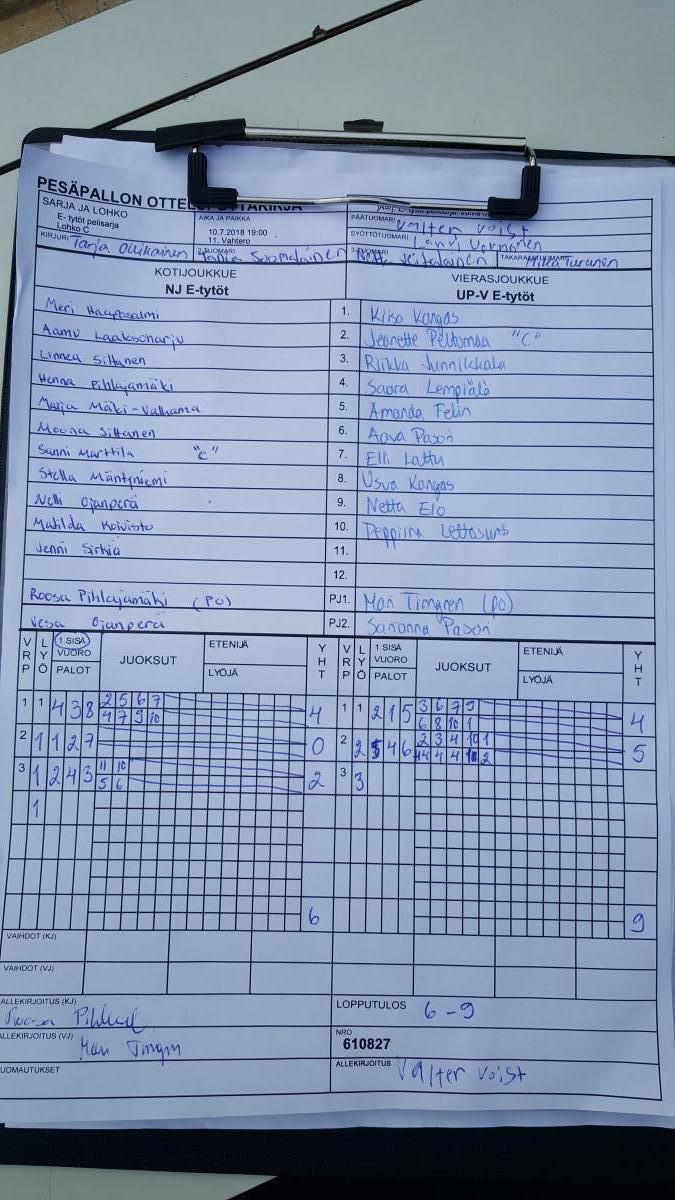 PESÄPALLON
SARJA JA LOHKO
E- tytöt pelisarja
Lohko C
AIKA JA PAIKKA
10.7.2018 19:00
11. Vahtero
PÄÄTUOMARI Valter Voist
SYÖTTÖTUOMARI Lauri
KIRJURI Tarja Ollikainen
2-TUOMARI Suomalainen
3-TUOMARI
TAKARAJATUOMARI Mika Turunen
KOTIJOUKKUE
NJ E-tytöt
VIERASJOUKKUE
UP-V E-tytöt
Meri Haapasalmi 1. Kiisa Kangas
Aamu Laaksoharju 2. Jeanette Peltomaa "C"
Linnea Siltanen 3. Riikka Junnikkala
Henna Pihlajamäki 4. Saara Lempiälä
Marja Mäki-Valkama 5. Amanda Felin
Moona Siltanen 6. Aava Pason
Sanni Marttila "C" 7. Elli Lattu
Stella Mäntyniemi 8. Usva Kangas
Nelli Ojanperä 9. Netta Elo
Matilda Koivisto 10. Peppiina
Jenni Sirkiä 11.
12.
Roosa Pihlajamäki (PO) PJ1. Mari Timgren (PO)
Vesa Ojanperä PJ2. Sananna Pason
VRP LYÖ 1.SISÄ VUORO PALOT JUOKSUT ETENIJÄ LYÖJÄ YHT VRP LYÖ 1.SISÄ VUORO PALOT JUOKSUT ETENIJÄ LYÖJÄ YHT
1 1 4 3 8 2 5 6 7 4 1 1 2 1 5 3 6 7 9 4
4 7 9 10 6 8 10 1
2 1 1 2 7 0 2 2 5 4 6 2 3 4 10 1 5
3 1 2 4 3 11 10 2 3 3
5 6
1
6 9
VAIHDOT (KJ)
VAIHDOT (VJ)
ALLEKIRJOITUS (KJ)
LOPPUTULOS 6-9
ALLEKIRJOITUS (VJ)
NRO
610827
UOMAUTUKSET
ALLEKIRJOITUS Valter Voist